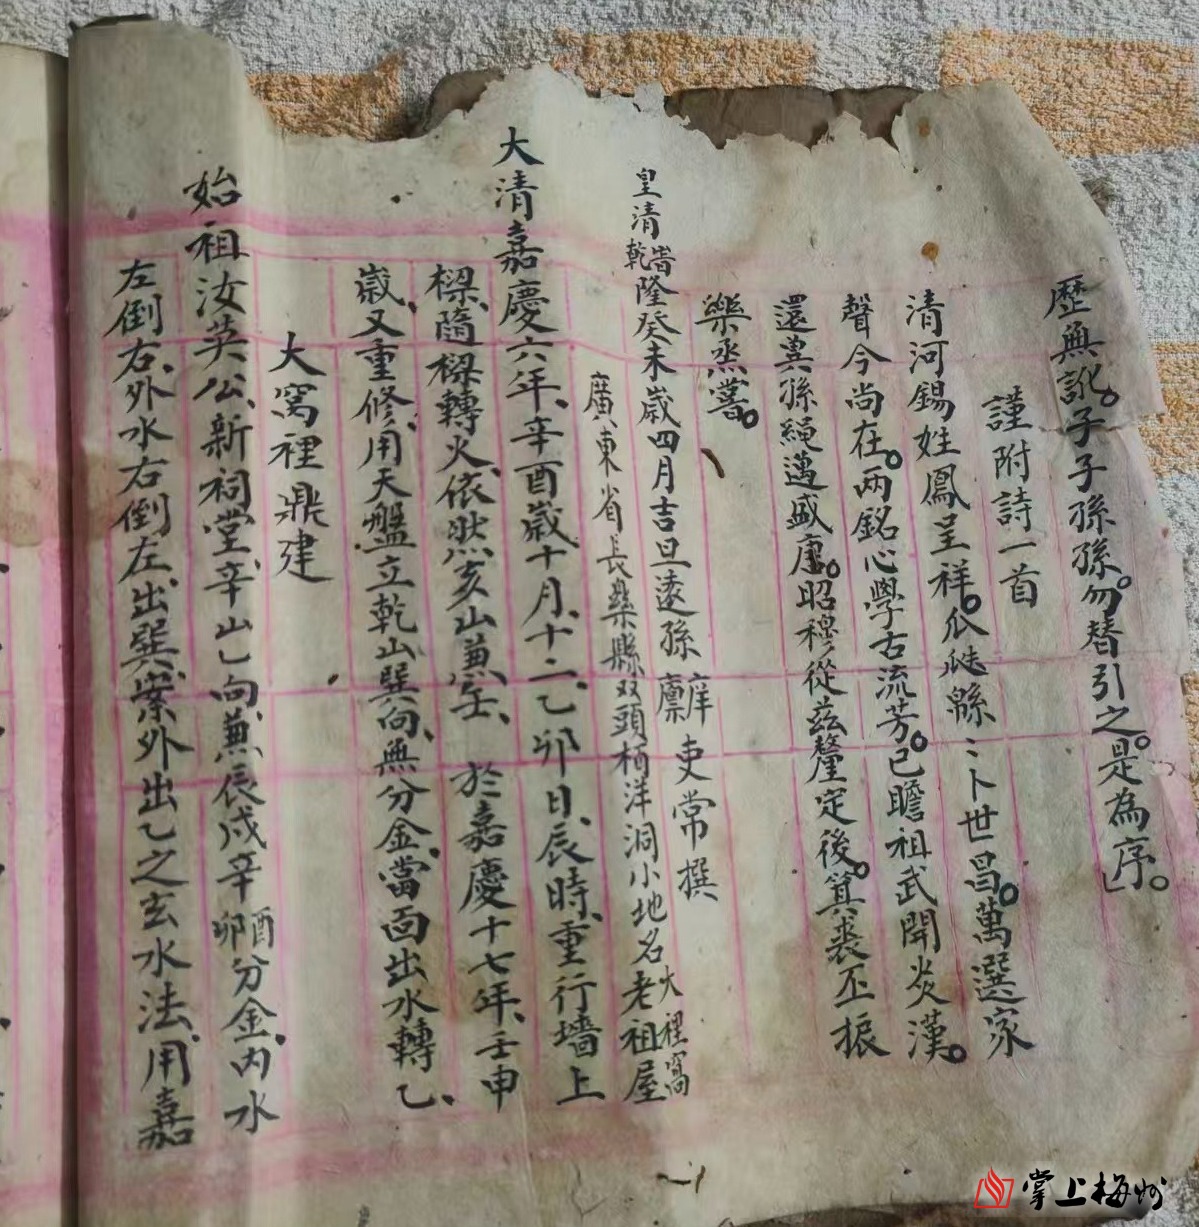 歷無訛。子子孫孫。勿替引之。是為序。」
謹附詩一首
清河錫姓鳳呈祥。瓜瓞綿々卜世昌。萬選家
聲今尚在。兩銘心學古流芳。已瞻祖武開炎漢。
還冀孫繩邁盛唐。昭穆從茲釐定後。箕裘丕振
樂烝嘗。
皇清乾隆癸未歲四月吉旦逡孫庠廩吏常撰
廣東省長樂縣双頭栢洋洞小地名大窩裡老祖屋
大清嘉慶六年、辛酉歲十月、十二、乙卯日、辰時、重行墻上
樑、隨樑轉火、依然亥山兼壬、於嘉慶十七年、壬申
歲、又重修、用天盤立乾山巽向、無分金、當面出水轉乙、
大窩裡鼎建
始祖汝英公、新祠堂、辛山乙向、兼辰戌辛酉卯分金、內水
左倒右、外水右倒左、出巽、案外出乙之玄水法、用嘉
掌上梅州